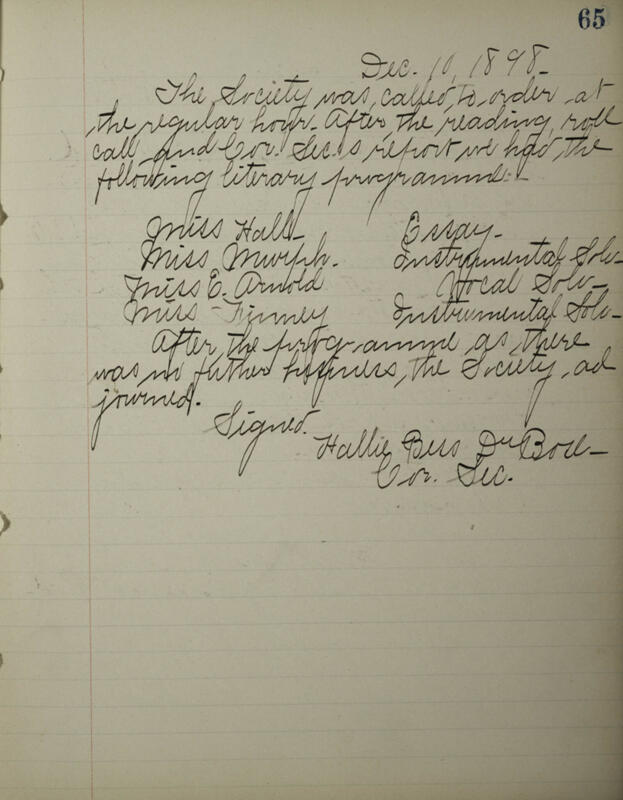 65
Dec. 10, 1898-
The Society was called to order at
the regular hour. After the reading, roll
call and Cor. Sec.s report we had the
following literary programme:-
Miss Hall- Essay-
Miss Murph. Instrumental Solo-
Miss E. Arnold Vocal Solo-
Miss Finney Instrumental Solo-
After the programme as there
was no futher business, the Society ad
journed.
Signed.
Hallie Bess Du Bose-
Cor. Sec.